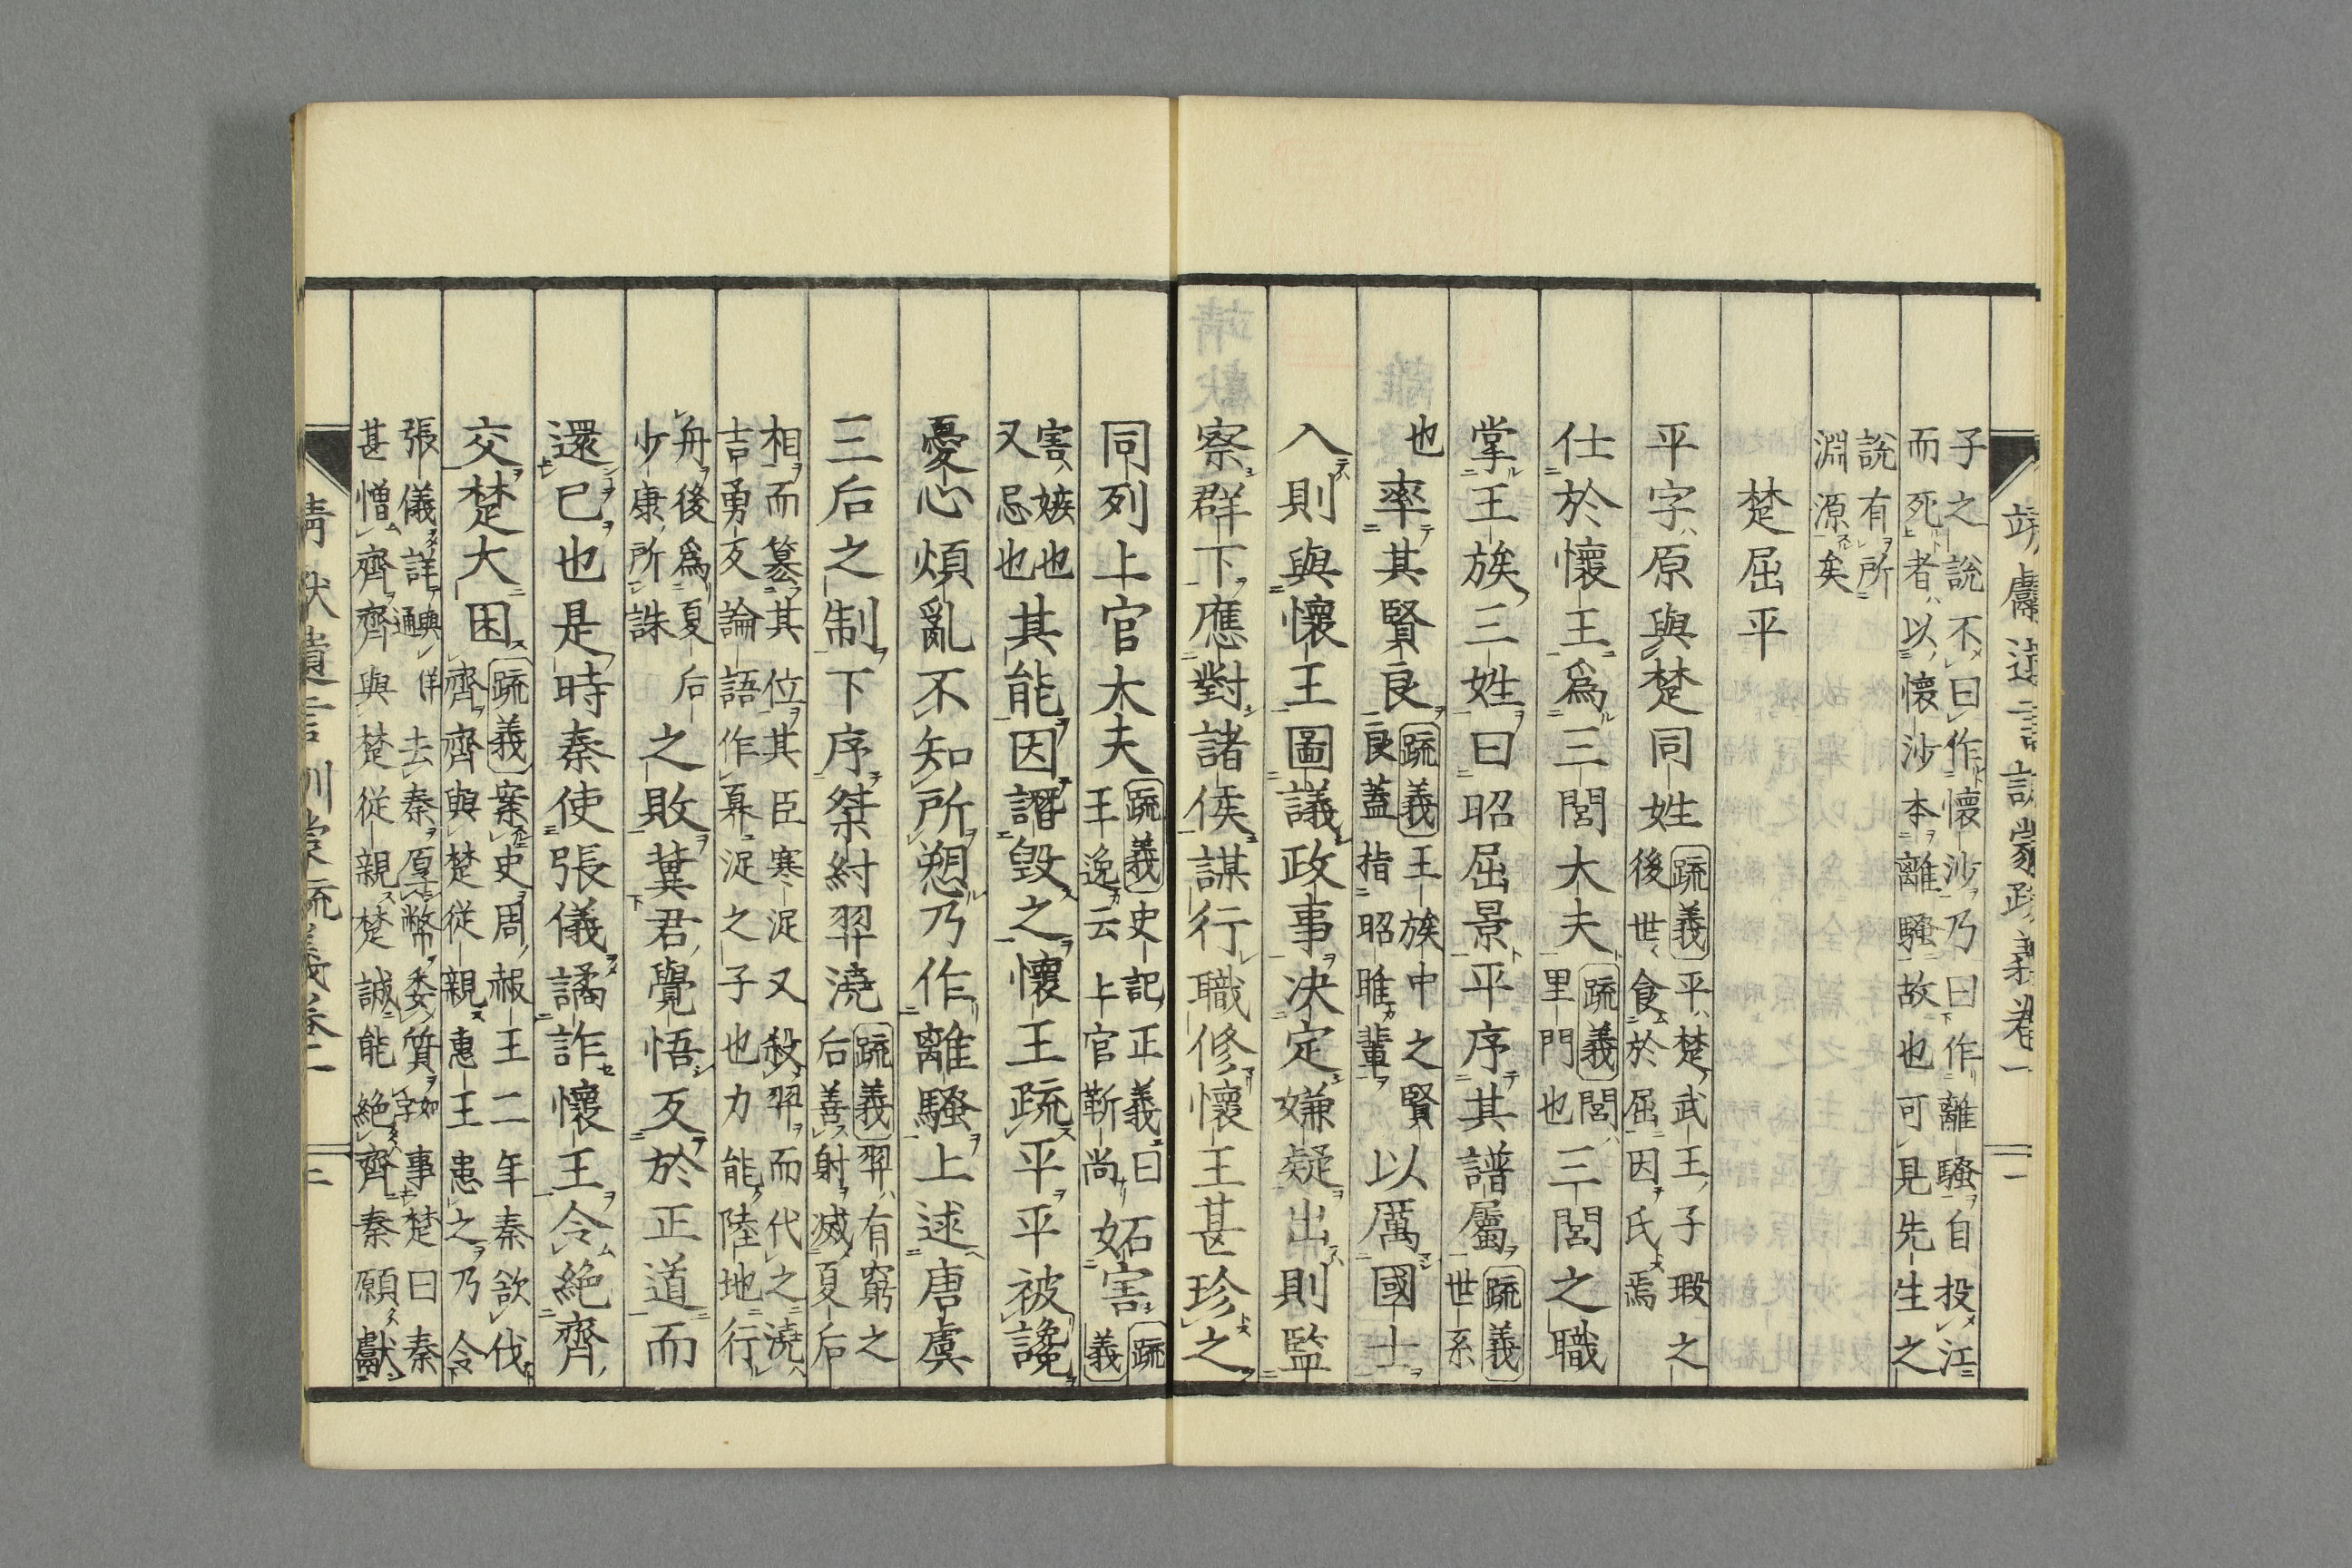 子之說不曰作懷沙乃曰作離騷自投江
而死者以懷沙本離騷故也可見先生之
說有所
淵源矣
楚屈平
平字原與楚同姓
疏義平楚武王子瑕之
後世食於屈因氏焉
仕於懷王爲三閭大夫
疏義閭
里門也
三閭之職
掌王族三姓曰昭屈景平序其譜屬
疏義
世系
也
率其賢良
疏義王族中之賢
良蓋指昭雎輩
以厲國士
入則與懷王圖議政事决定嫌疑出則監
察群下應對諸侯謀行職修懷王甚珍之
同列上官大夫
疏義史記正義曰
王逸云上官靳尚
妬害
疏
義
害嫉也
又忌也
其能因譖毀之懷王疏平平被讒
憂心煩亂不知所愬乃作離騷上述唐虞
三后之制下序桀紂羿澆
疏義羿有窮之
后善射滅夏后
相而簒其位其臣寒浞又殺羿而代之澆
吉勇反論語作奡浞之子也力能陸地行
舟後爲夏后
少康所誅
之敗冀君覺悟反於正道而
還已也是時秦使張儀譎詐懷王令絕齊
交楚大困
疏義案史周赧王二年秦欲伐
齊齊與楚從親惠王患之乃令
張儀詳與佯通去秦厚幣委質如字事楚曰秦
甚憎齊齊與楚從親楚誠能絕齊秦願獻
靖獻遺言訓蒙疏義卷一
一
二